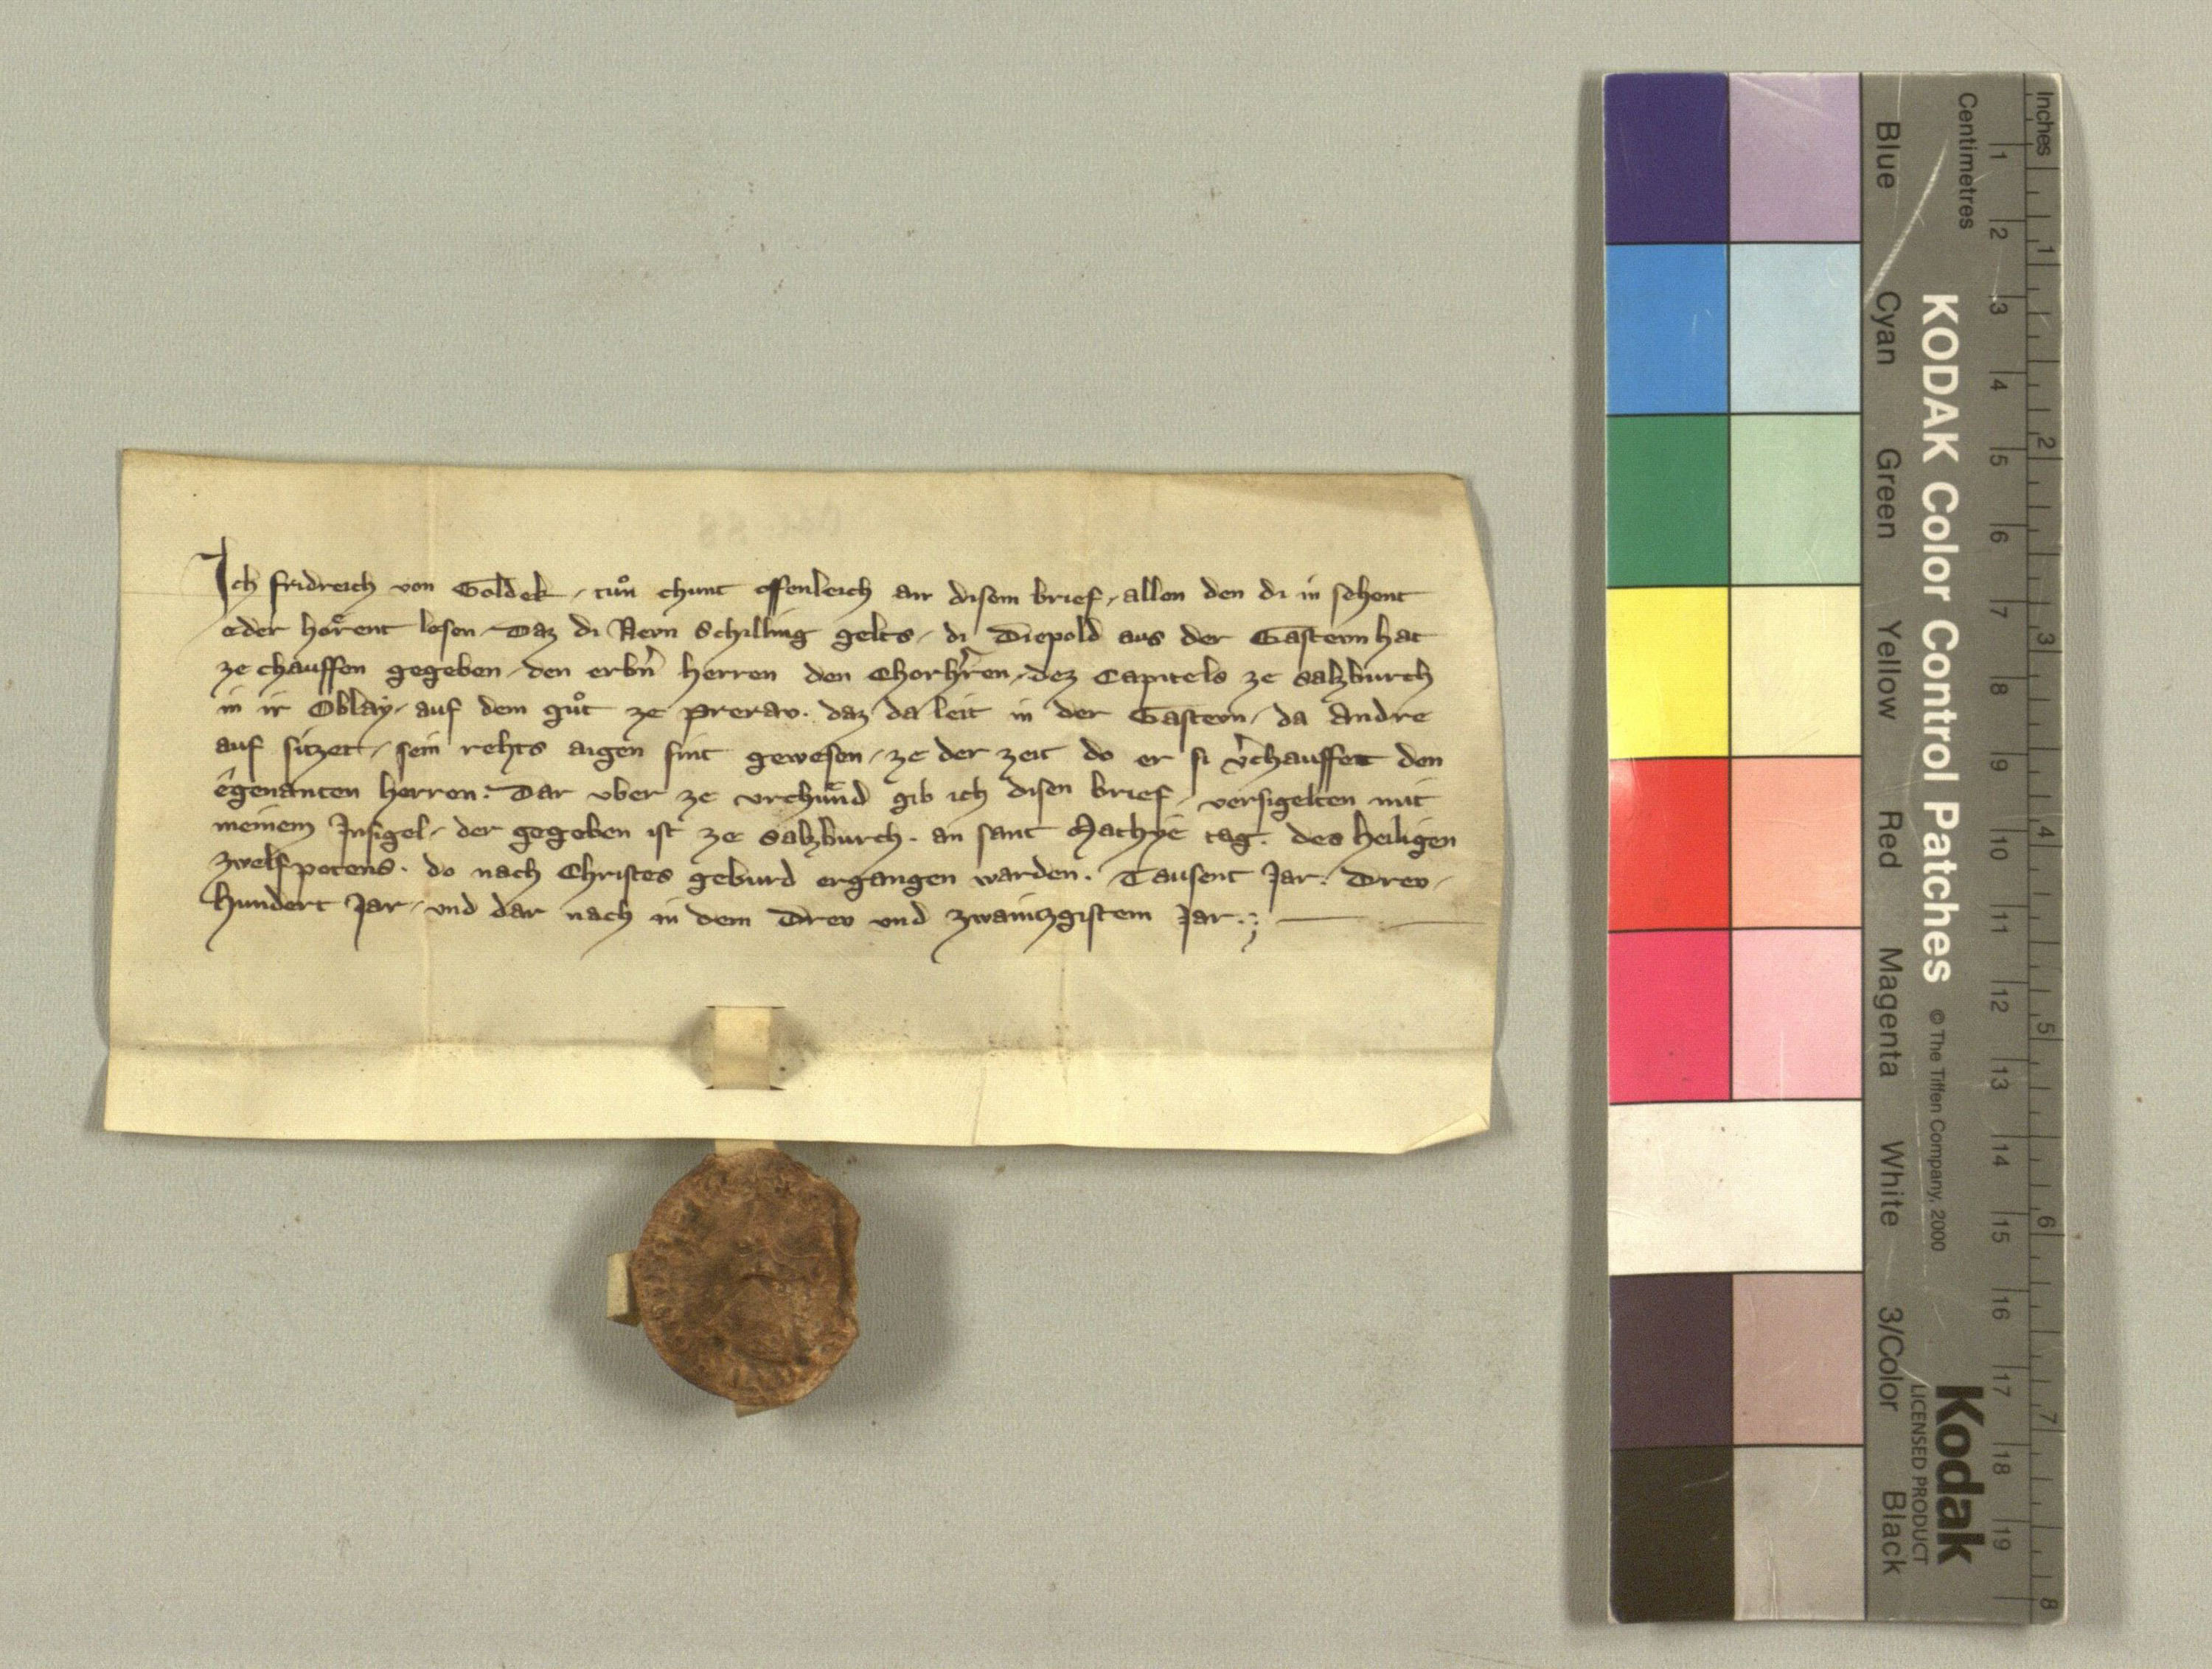 Ich fridreich von Goldek / tuͦn chunt offenleich an disem brief / allen den di in sehent
oder hoͤrent lesen / Daz di Nevn Schilling gelts / di Diepold aus der Gastevn hat
ze chauffen gegeben / den erbn̄ herren den Chorhr̄en / dez Capitels ze Salzburch
in ir Oblay / auf dem guͦt ze prerav . daz da leit in der Gastevn / da Andre
auf sitzet / sein rehts aigen sint gewesen / ze der zeit do er si v̄chauffet den
êgenanten herren . Dar vber ze vrchund gib ich disen brief / versigelten mit
meinem Insigel / der gegeben ist ze Salzburch . an sant Mathye tag . des heiligen
zwelfpotens . do nach Christes geburd ergangen warden . Tausent Jar . Drev /
hundert Jar / vnd dar nach in dem Drev vnd zwainzgistem Jar .
Inches
Centimetres
1 2 3 4 5 6 7 8 9 10 11 12 13 14 15 16 17 18 19
1 2 3 4 5 6 7 8
KODAK Color Control Patches
© The Tiffen Company, 2000
Kodak
LICENSED PRODUCT
Blue Cyan Green Yellow Red Magenta White 3/Color Black